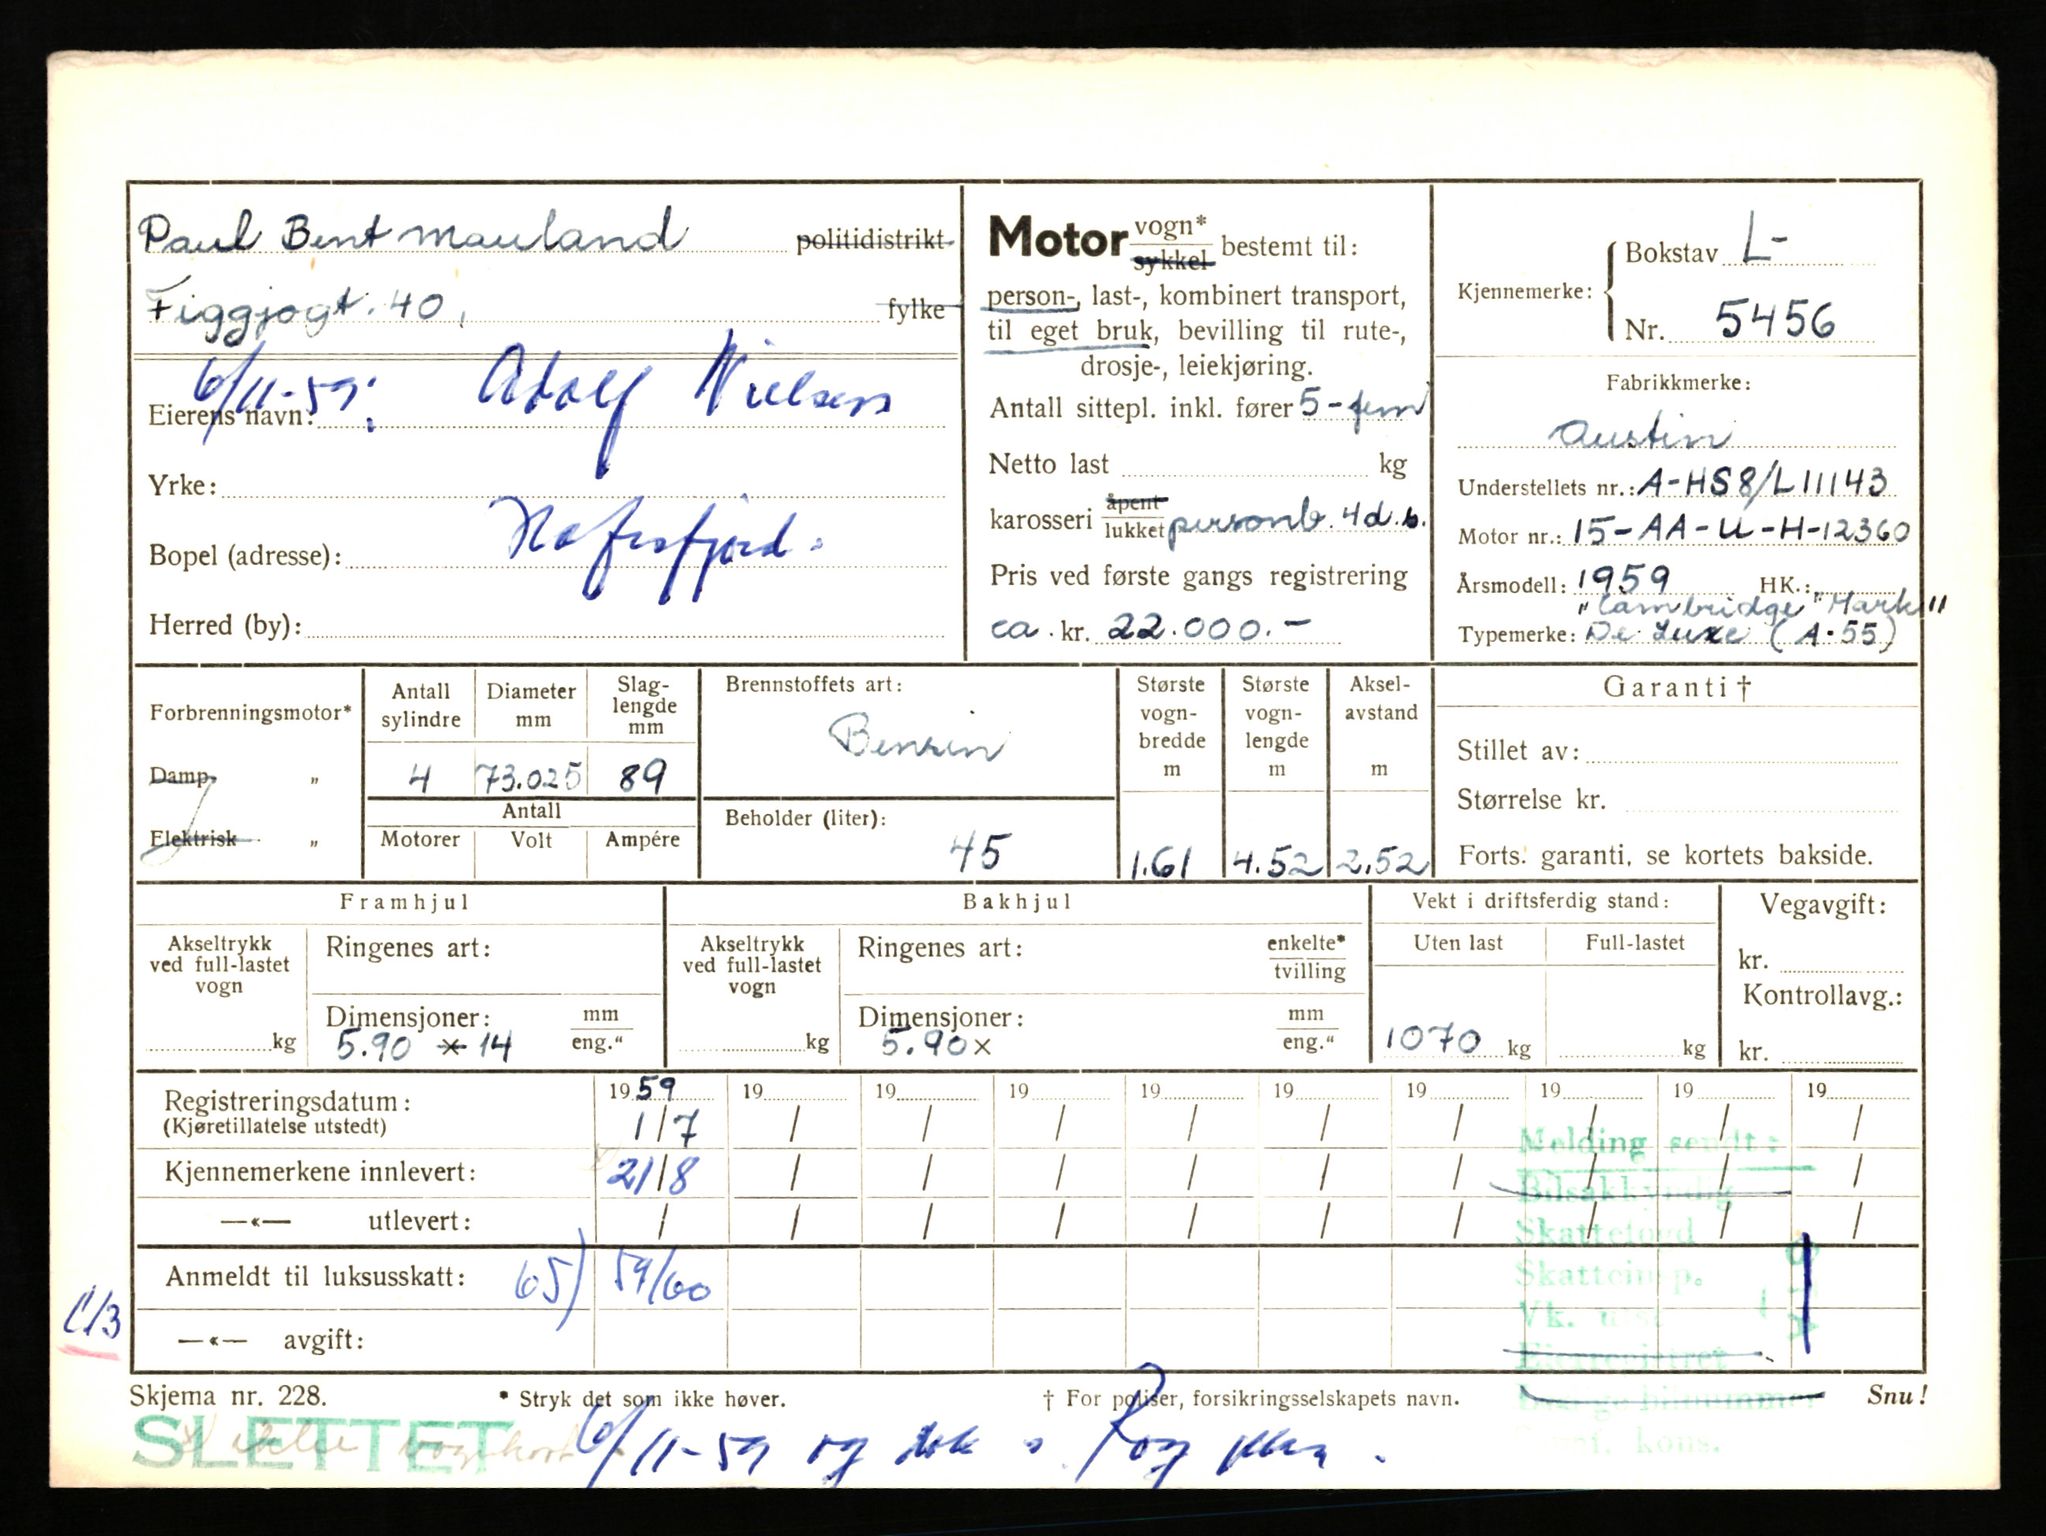 Paul Bent Mauland politidistrikt
Figgjogt. 40, fylke
6/11-59: Adolf Nielsen
Eierens navn:
Yrke:
Bopel (adresse): Hafrsfjord.
Herred (by):
Motor vogn* sykkel bestemt til:
person-, last-, kombinert transport,
til eget bruk, bevilling til rute-,
drosje-, leiekjøring.
Antall sittepl. inkl. fører 5-fem
Netto last kg
karosseri åpent lukket personb. 4d.b.
Pris ved første gangs registrering
ca. kr. 22.000.-
Kjennemerke: Bokstav L-
Nr. 5456
Fabrikkmerke:
Austin
Understellets nr.: A-HS8/L11143
Motor nr.: 15-AA-U-H-12360
Årsmodell: 1959 HK.:
"Cambridge" Mark II
Typemerke: De Luxe (A.55)
Forbrenningsmotor*
Damp. "
Elektrisk "
Antall sylindre
Diameter mm
Slag- lengde mm
4 73.025 89
Antall
Motorer Volt Ampére
Brennstoffets art:
Bensin
Beholder (liter):
45
Største vogn- bredde m
1.61
Største vogn- lengde m
4.52
Aksel- avstand m
2.52
Garanti †
Stillet av:
Størrelse kr.
Forts. garanti, se kortets bakside.
Framhjul
Akseltrykk ved full-lastet vogn
kg
Ringenes art:
Dimensjoner: mm eng."
5.90 x 14
Bakhjul
Akseltrykk ved full-lastet vogn
kg
Ringenes art: enkelte* tvilling
Dimensjoner: mm eng."
5.90x
Vekt i driftsferdig stand:
Uten last Full-lastet
1070 kg kg
Vegavgift:
kr.
Kontrollavg.:
kr.
Registreringsdatum: 1959 19 19 19 19 19 19 19 19 19
(Kjøretillatelse utstedt) 1/7 / / / / / / / / /
Kjennemerkene innlevert: 21/8 / / / / / / / / /
—«— utlevert: / / / / / / / / / /
Anmeldt til luksusskatt: 65) 59/60
—«— avgift:
1/3
Melding sendt:
Bilsakkyndig
Vk.
Skjema nr. 228. * Stryk det som ikke høver. † For poliser, forsikringsselskapets navn. Snu!
SLETTET
6/11-59 og
kons.